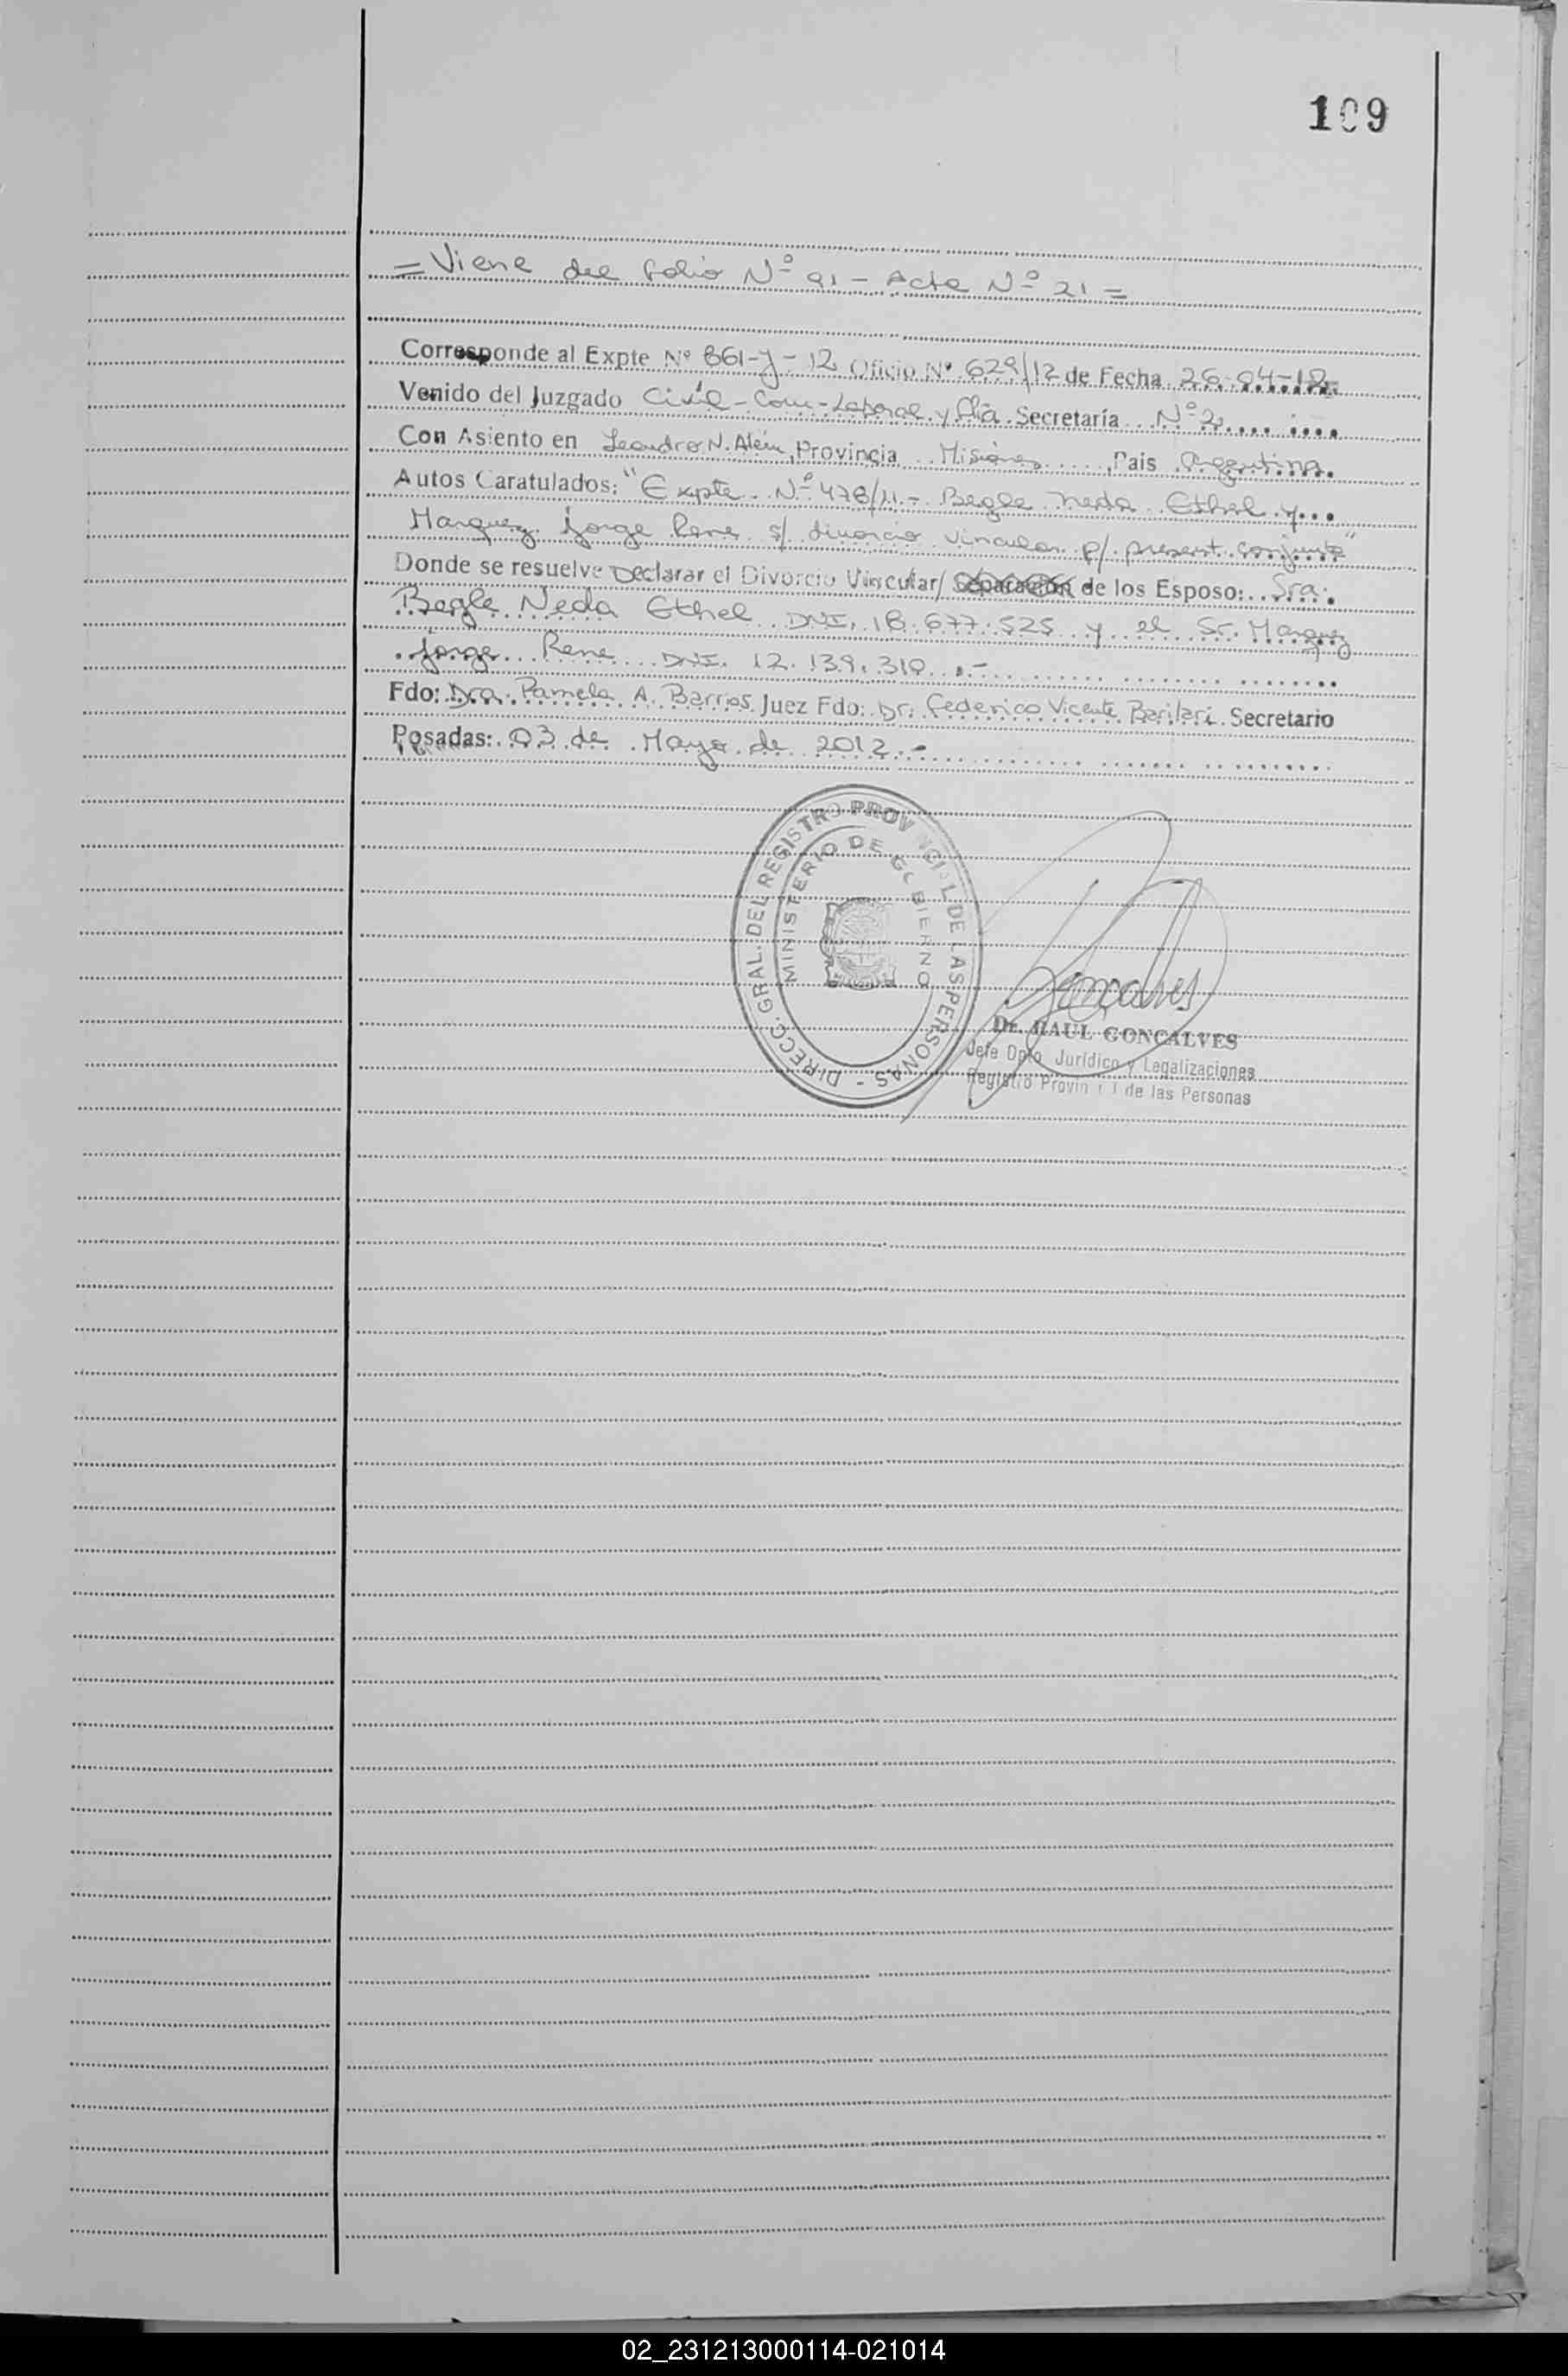 109
= Viene del folio Nº 91 - Acta Nº 21 =
Corresponde al Expte Nº 861-J-12 Oficio Nº 629/12 de Fecha 26-04-12
Venido del Juzgado Civil-Com-Laboral y flia. Secretaría Nº 2
Con Asiento en Leandro N. Alem, Provincia Misiones, Pais Argentina.
Autos Caratulados: "Expte. Nº 478/11.- Begle Neda Ethel y
Marquez Jorge Rene s/ divorcio vincular p/. present. conjunta"
Donde se resuelve Declarar el Divorcio Vincular/ Separación de los Esposo: Sra.
Begle Neda Ethel DNI. 18.677.525 y el Sr. Marquez
Jorge Rene DNI. 12.139.310.-
Fdo: Dra. Pamela A. Barrios Juez Fdo: Dr. Federico Vicente Barilari Secretario
Posadas: 03 de Mayo de 2012.-
DIRECC. GRAL. DEL REGISTRO PROVINCIAL DE LAS PERSONAS -
MINISTERIO DE GOBIERNO
Goncalves
Dr. RAUL GONCALVES
Jefe Dpto. Jurídico y Legalizaciones
Registro Provincial de las Personas
02_231213000114-021014